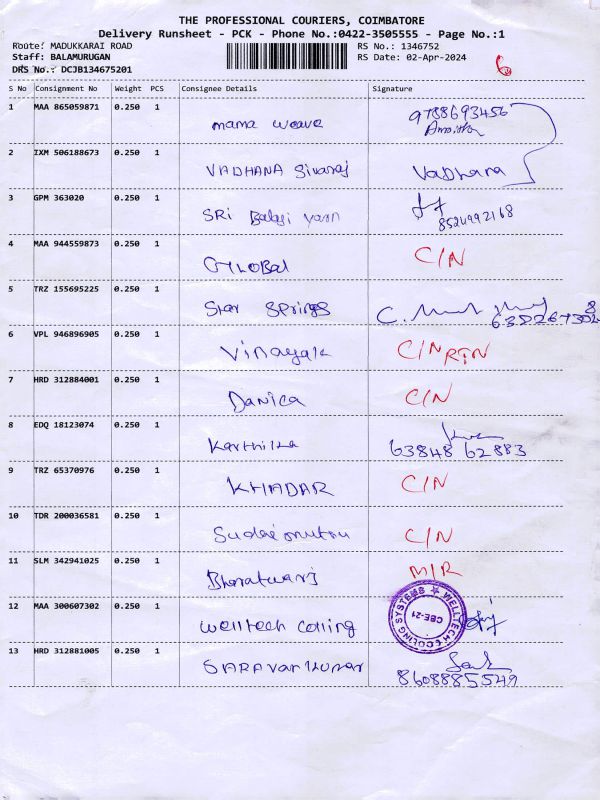 THE PROFESSIONAL COURIERS, COIMBATORE
Delivery Runsheet - PCK - Phone No.:0422-3505555 - Page No.:1
Route: MADUKKARAI ROAD RS No.: 1346752
Staff: BALAMURUGAN RS Date: 02-Apr-2024
DRS No.: DCJB134675201 6
S No Consignment No Weight PCS Consignee Details Signature
1 MAA 865059871 0.250 1 mama weave 9788693456
2 IXM 506188673 0.250 1 VADHANA Sivaraj Vadhana
3 GPM 363020 0.250 1 SRi Balaji yarn 8524992168
4 MAA 944559873 0.250 1 GLOBAL C/N
5 TRZ 155695225 0.250 1 Star Springs
6 VPL 946896905 0.250 1 Vinayak C/N RTN
7 HRD 312884001 0.250 1 Danica C/N
8 EDQ 18123074 0.250 1 Karthika 63848 62883
9 TRZ 65370976 0.250 1 KHADAR C/N
10 TDR 200036581 0.250 1 C/N
11 SLM 342941025 0.250 1 Bharatwarj M/R
12 MAA 300607302 0.250 1 Welltech Colling WELLTECH COOLING SYSTEMS CBE-21
13 HRD 312881005 0.250 1 SARAvan kumar 8608885549